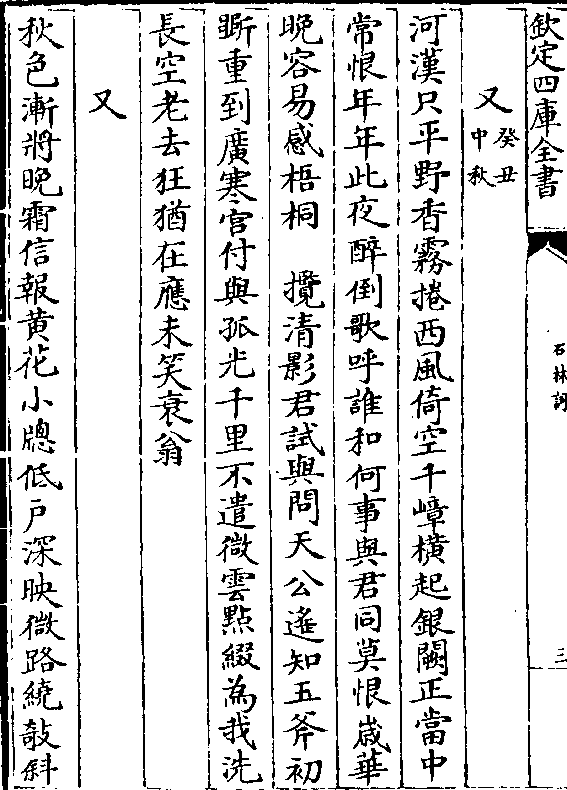 欽定四庫全書
石林詞
三
又癸丑中秋
河漢只平野香霧捲西風倚空千嶂橫起銀闕正當中
常恨年年此夜醉倒歌呼誰和何事與君同莫恨歲華
晚容易感梧桐　攬清影君試與問天公遙知玉斧初
斷重到廣寒宫付與孤光千里不遣微雲點綴為我洗
長空老去狂猶在應未笑衰翁
又
秋色漸將晚霜信報黄花小牕低戸深映微路繞敧斜